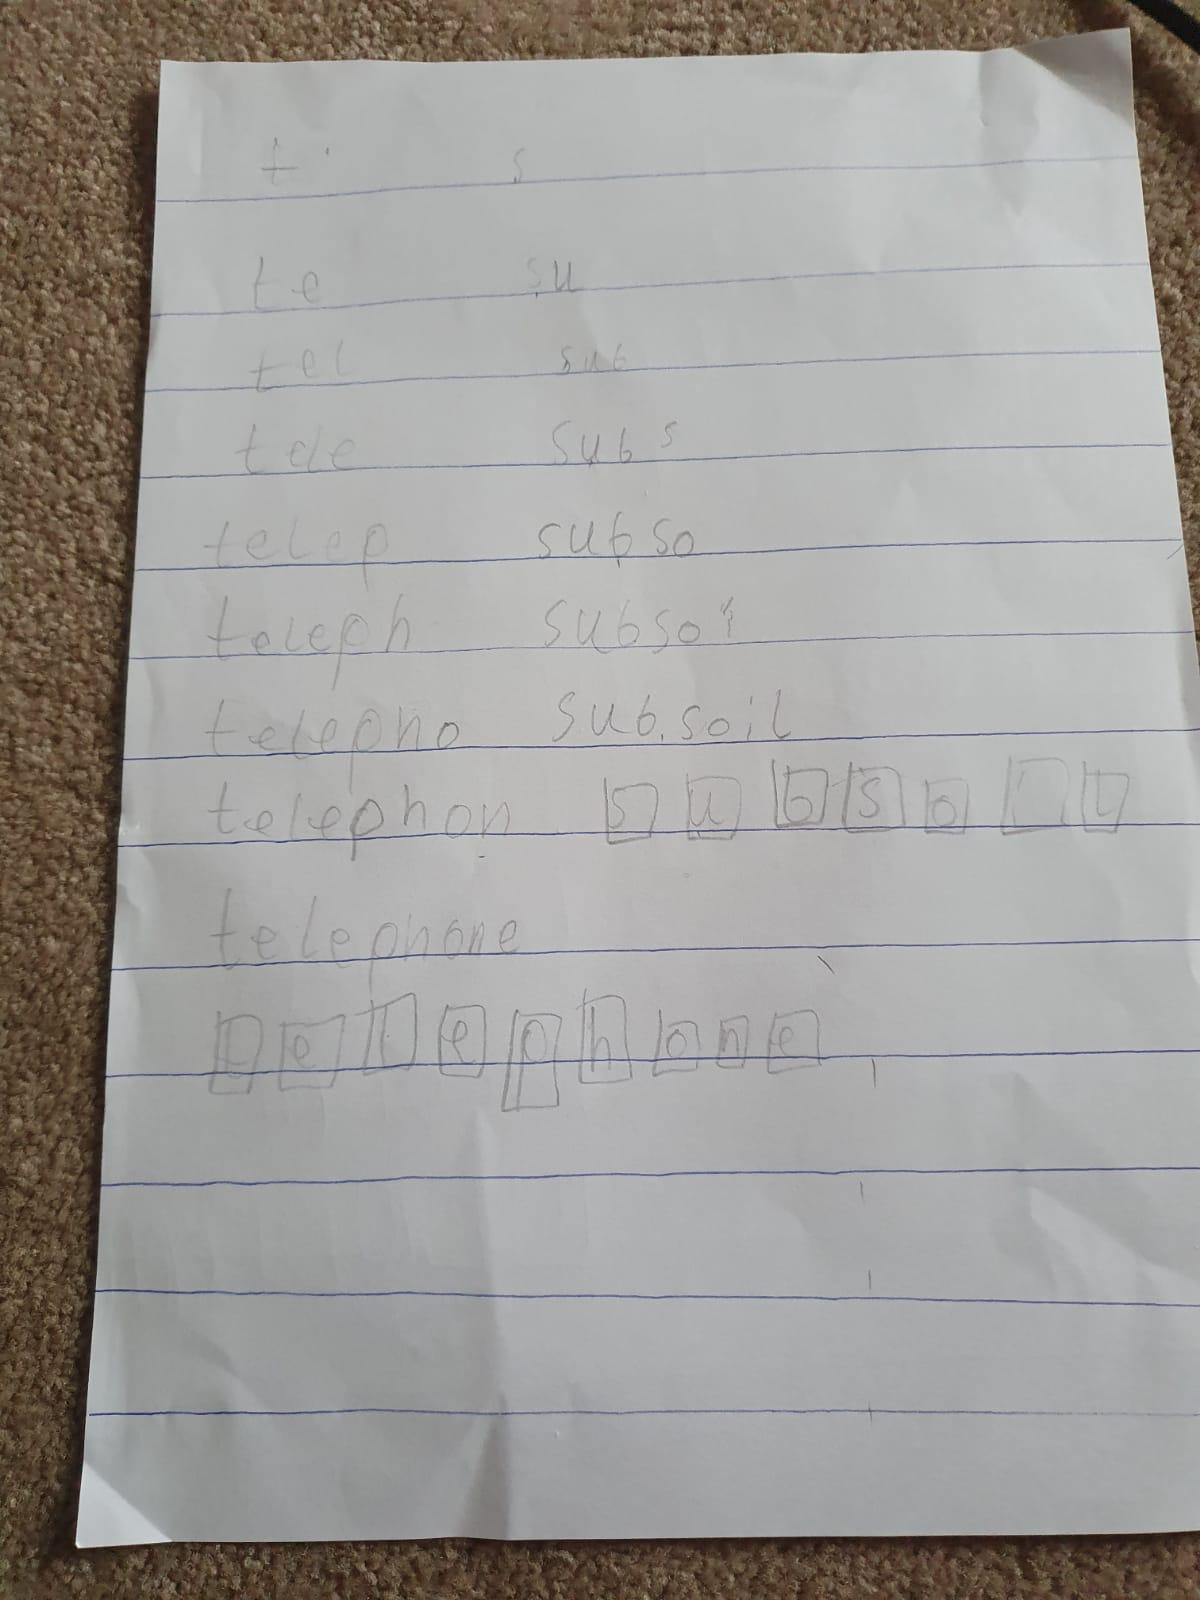 t s
te su
tel sub
tele subs
telep subso
teleph subsoi
telepho subsoil
telephon s u b s o i l
telephone
t e l e p h o n e